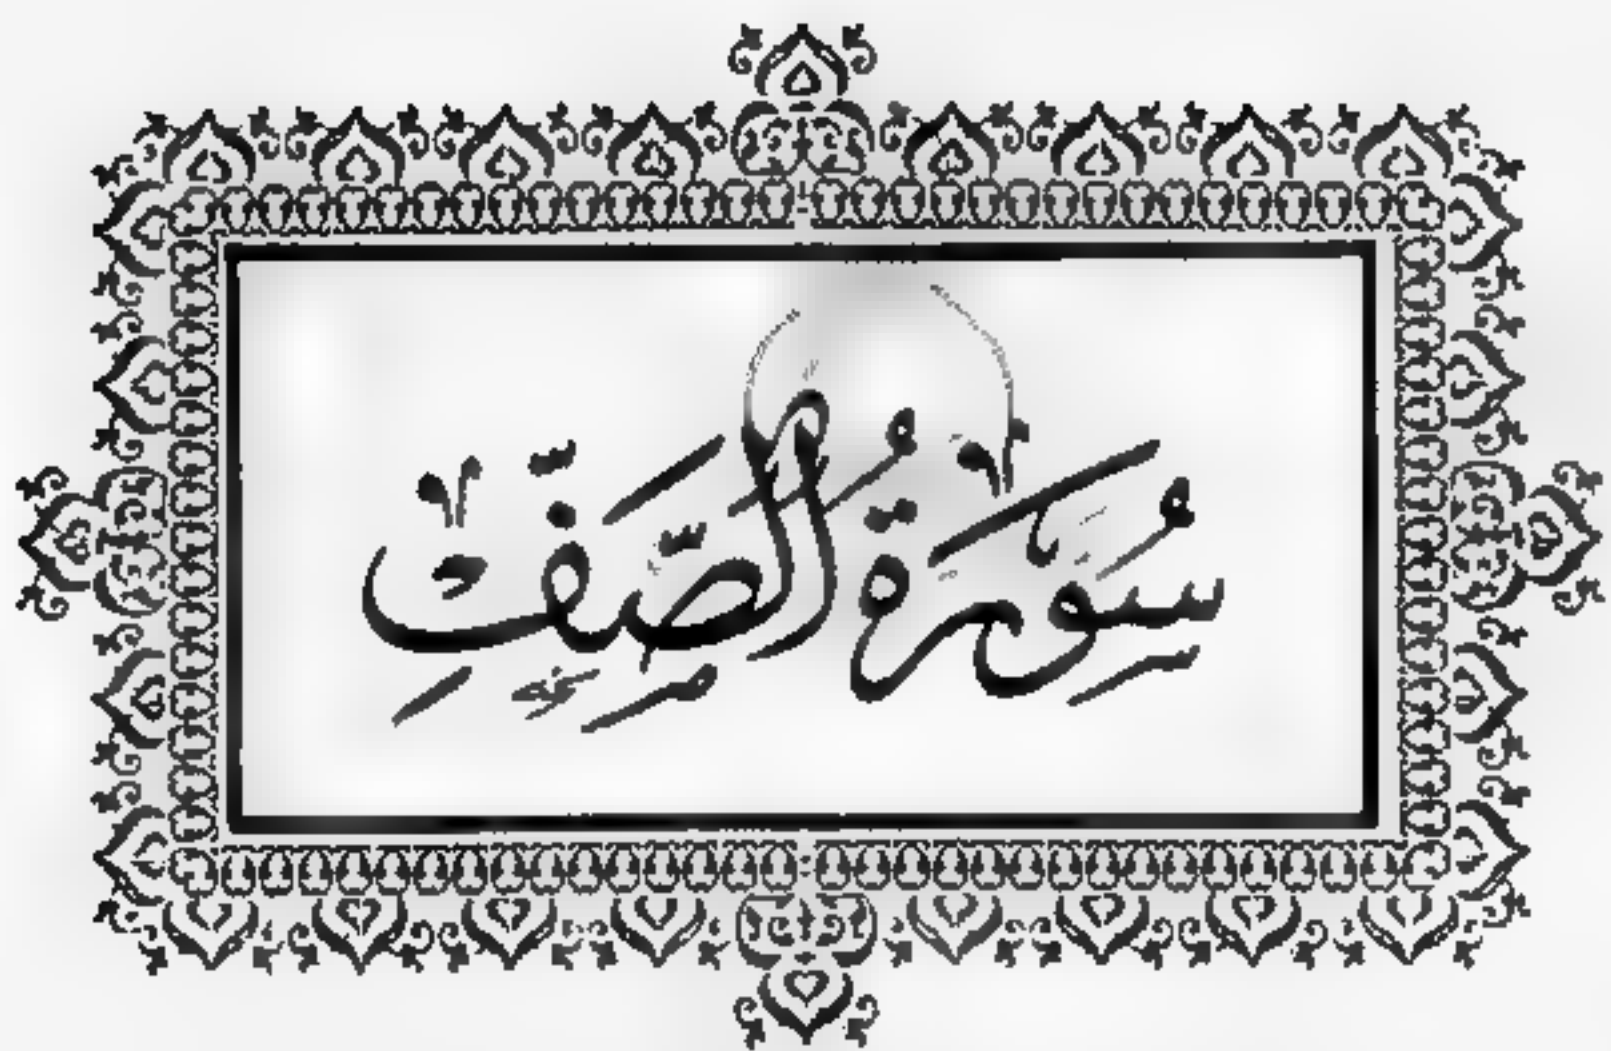 سُوْرَةُ الصَّفِّ